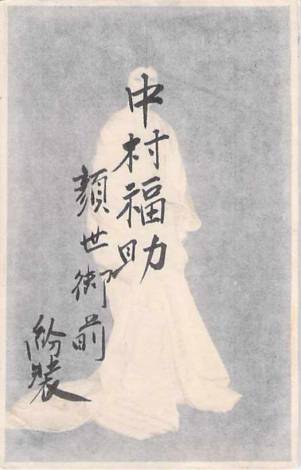 中村福助
顔世御前
紛装